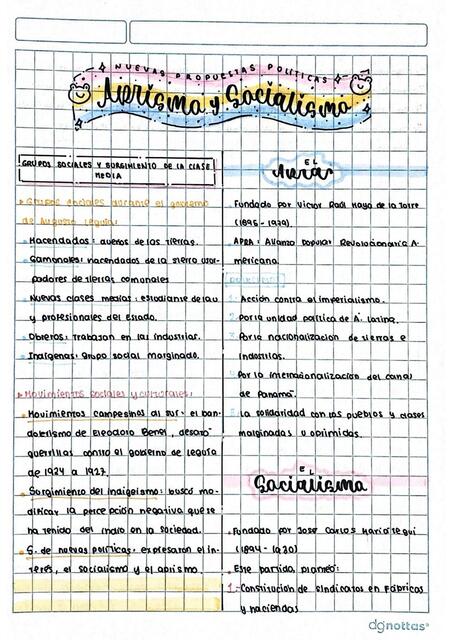 NUEVAS PROPUESTAS POLITICAS
Aprismo y Socialismo
GRUPOS SOCIALES Y SURGIMIENTO DE LA CLASE
MEDIA
Grupos sociales durante el gobierno
de Augusto Leguía:
Hacendados: dueños de las tierras.
Gamonales: hacendados de la sierra usur-
padores de tierras comunales
Nuevas clases medias: estudiante de la u
y profesionales del estado.
Obreros: Trabajan en las industrias.
Indígenas: grupo social marginado.
Movimientos sociales y culturales:
Movimientos campesinos al sur: el ban-
dolerismo de Eleodoro Benel, desató
guerrillas contra el gobierno de Leguía
de 1924 a 1927.
Surgimiento del indigeismo: buscó mo-
dificar la percepción negativa que se
ha tenido del indio en la sociedad.
S. de nuevas políticas: expresaron el in-
terés, el socialismo y el aprismo.
EL
Aura
Fundado por Victor Raúl Haya de la Torre
(1895 - 1979).
APRA: Alianza popular Revolucionaria A-
mericana.
1. Acción contra el imperialismo.
2. Por la unidad política de A. latina.
3. Por la nacionalización de tierras e
industrias.
4. Por la internacionalización del canal
de Panamá.
5. La solidaridad con los pueblos y clases
marginadas u oprimidas.
EL
Socialismo
Fundado por José Carlos Mariátegui
(1894 - 1930)
Este partido, planteó:
1. Constitución de sindicatos en Fábricas
y haciendas
dgnottas